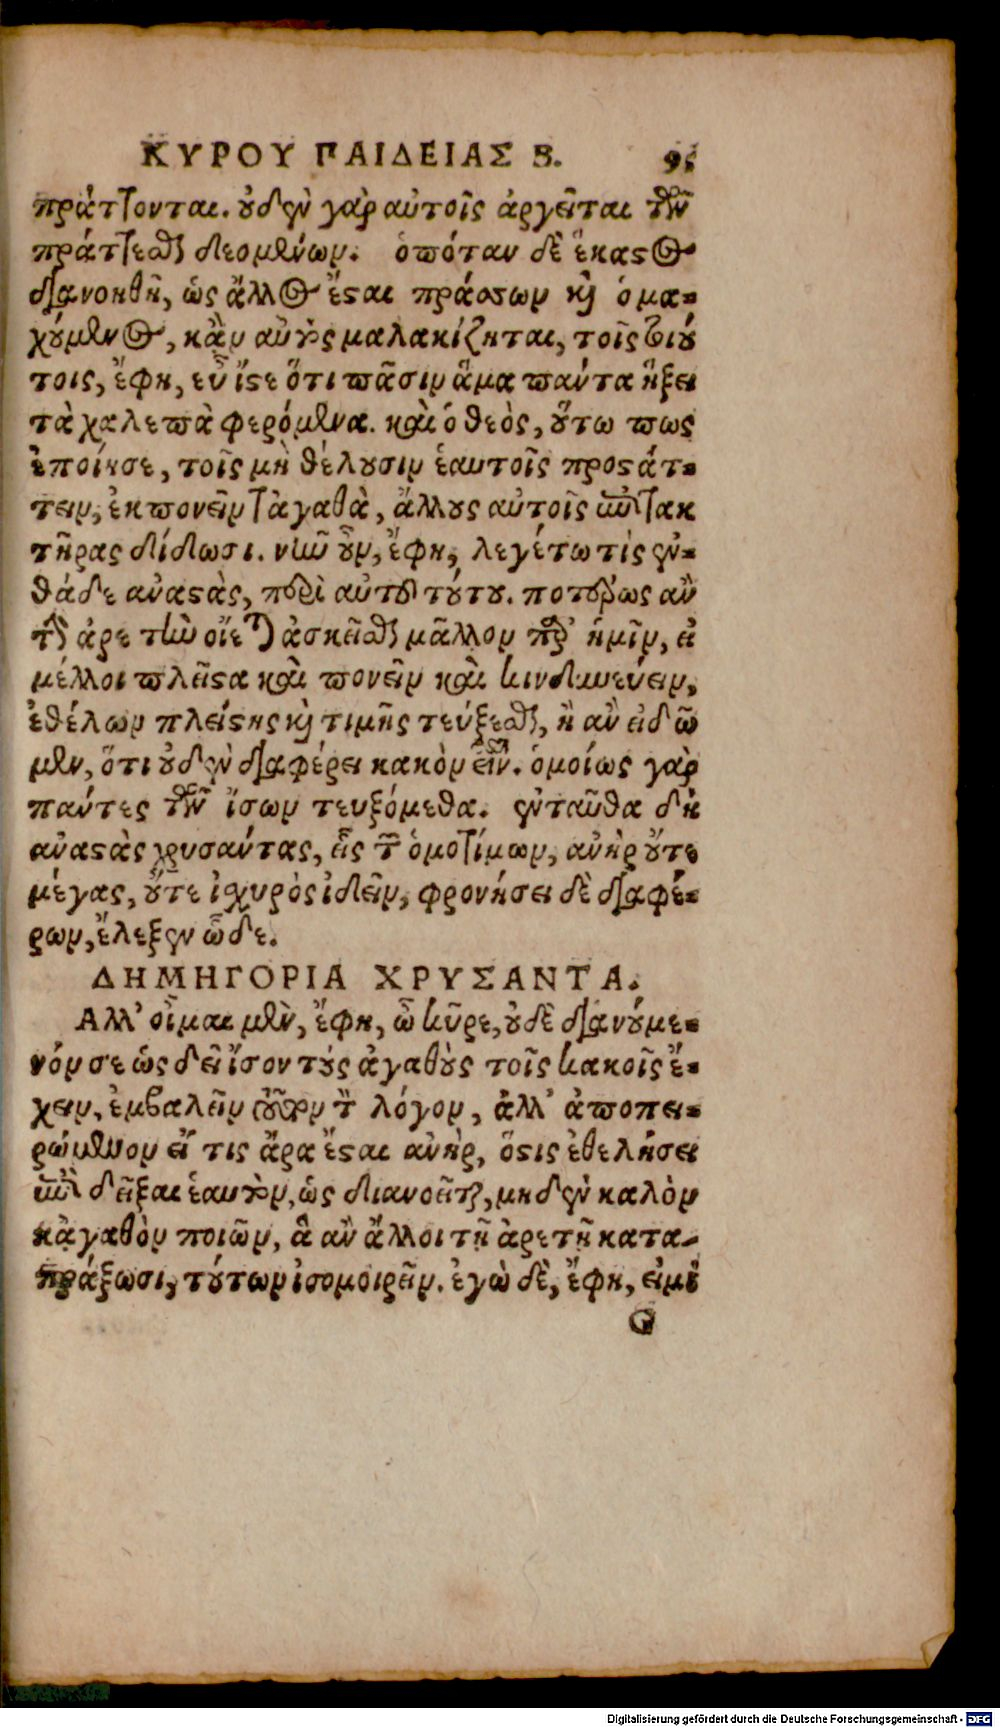 ΚΥΡΟΥ ΠΑΙΔΕΙΑΣ Β. 95
πράττονται. οὐδὲν γὰρ αὐτοῖς ἀργεῖται τῶν
πράττεσθαι δεομένων. ὁπόταν δὲ ἕκαστος
διανοηθῇ, ὡς ἄλλος ἔσται πράσσων καὶ ὁ μα-
χόμενος, κἂν αὐτὸς μαλακίζηται, τοῖς τοιού
τοις, ἔφη, εὖ ἴστε ὅτι πᾶσιν ἅμα πάντα ἥξει
τὰ χαλεπὰ φερόμενα. καὶ ὁ θεὸς, οὕτω πως
ἐποίησε, τοῖς μὴ θέλουσιν ἑαυτοῖς προστάτ-
τειν, ἐκπονεῖν τὰγαθὰ, ἄλλους αὐτοῖς ἐπιτακ
τῆρας δίδωσι. νῦν οὖν, ἔφη, λεγέτω τὶς ἐν-
θάδε ἀναστὰς, περὶ αὐτοῦ τούτου. ποτέρως ἂν
τὴν ἀρετὴν οἴεται ἀσκεῖσθαι μᾶλλον παρ' ἡμῖν, εἰ
μέλλοι πλεῖστα καὶ πονεῖν καὶ κινδυνεύειν,
ἐθέλων πλείστης καὶ τιμῆς τεύξεσθαι, ἢ ἂν εἰδῶ
μεν, ὅτι οὐδὲν διαφέρει κακὸν εἶναι. ὁμοίως γὰρ
πάντες τῶν ἴσων τευξόμεθα. ἐνταῦθα δὴ
ἀναστὰς χρυσάντας, εἷς τῶν ὁμοτίμων, ἀνὴρ οὔτε
μέγας, οὔτε ἰσχυρὸς ἰδεῖν, φρονήσει δὲ διαφέ-
ρων, ἔλεξεν ὧδε.
ΔΗΜΗΓΟΡΙΑ ΧΡΥΣΑΝΤΑ.
Αλλ' οἶμαι μὲν, ἔφη, ὦ κῦρε, οὐδὲ διανούμε-
νόν σε ὡς δεῖ ἴσον τοὺς ἀγαθοὺς τοῖς κακοῖς ἔ-
χειν, ἐμβαλεῖν τοῦτον τὸν λόγον, ἀλλ' ἀποπει-
ρώμενον εἴ τις ἄρα ἔσται ἀνὴρ, ὅστις ἐθελήσει
ἐπιδεῖξαι ἑαυτὸν, ὡς διανοεῖται, μηδὲν καλὸν
κἀγαθὸν ποιῶν, ἃ ἂν ἄλλοι τῇ ἀρετῇ κατα-
πράξωσι, τούτων ἰσομοιρεῖν. ἐγὼ δὲ, ἔφη, εἰμὶ
G
Digitalisierung gefördert durch die Deutsche Forschungsgemeinschaft - DFG